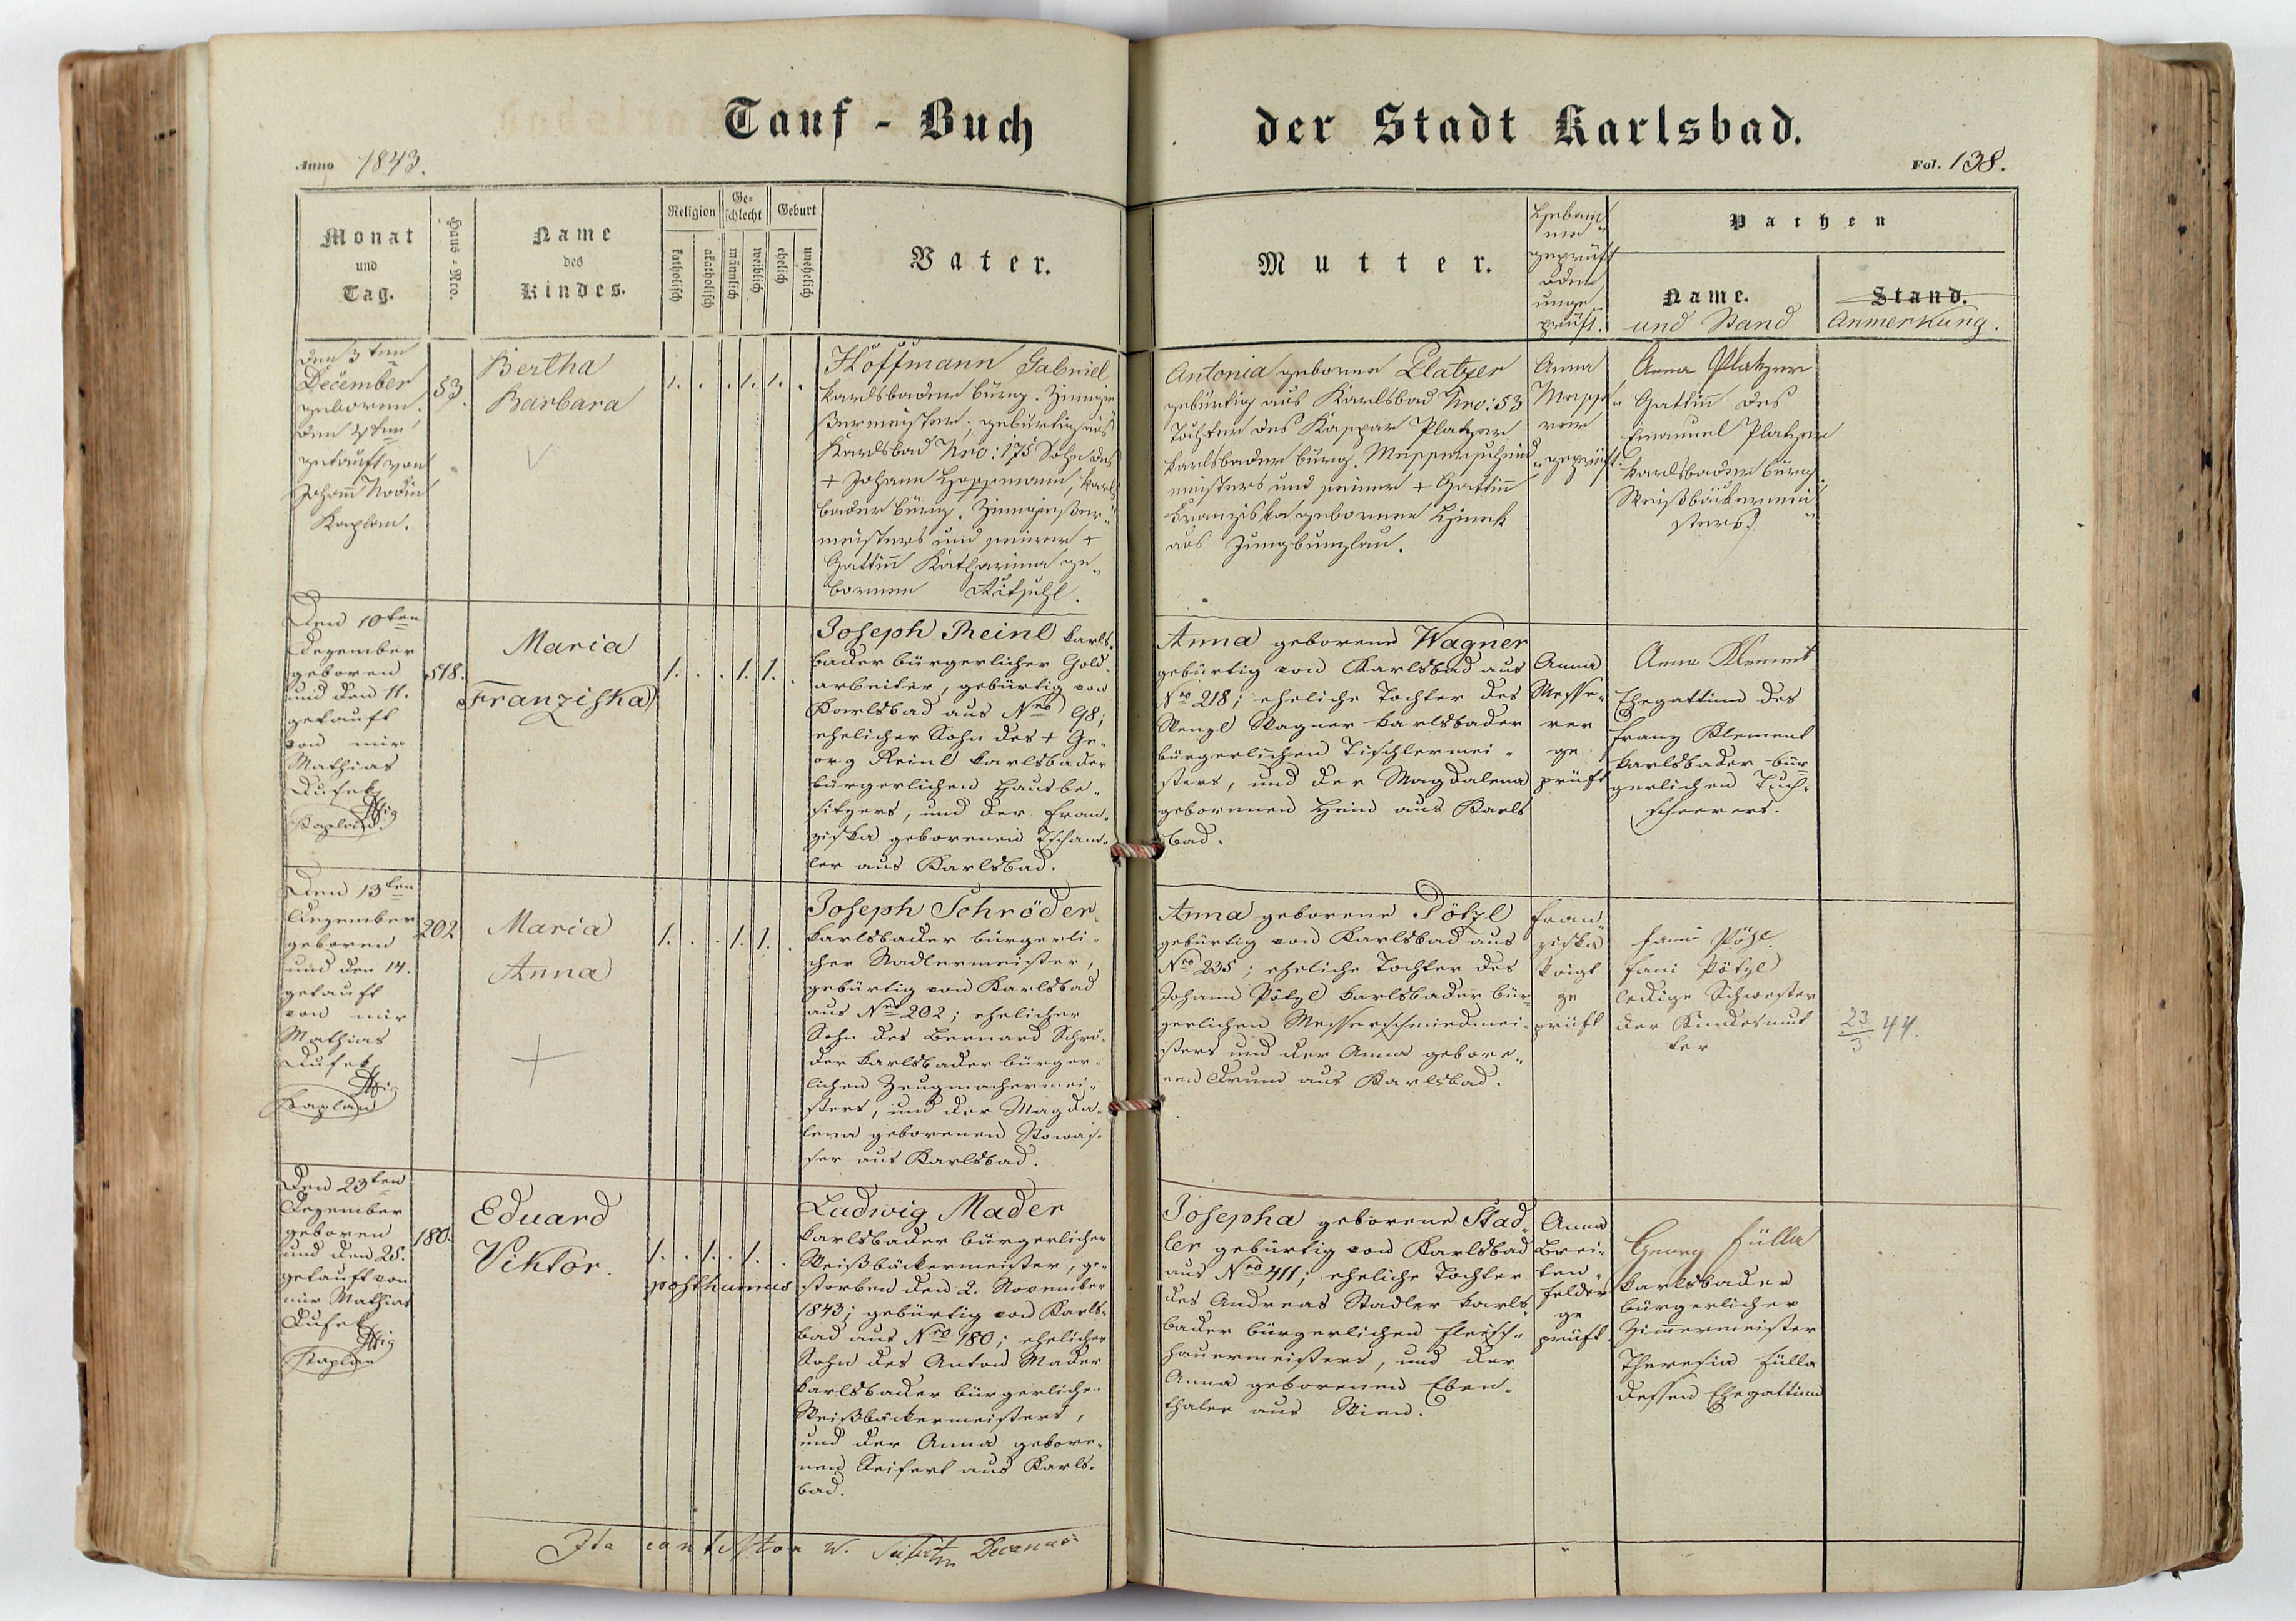 Tauf - Buch
der Stadt Karlsbad.
Anno 1843.
Fol. 138.
Monat
und
Tag.
Haus-Nro.
Name
des
Kindes.
Religion
katholisch
akatholisch
Ge-
schlecht
männlich
weiblich
Geburt
ehelich
unehelich
Vater.
Mutter.
Hebam
me
geprüft
oder
unge
prüft.
Pathen
Name.
und Stand
Stand.
Anmerkung.
den 3ten
December
geboren.
den 4ten
getauft von
Johann
Kaplan.
53.
Bertha
Barbara
1. . . 1. 1. .
Hoffmann Gabriel
Karlsbader bürg. Zinngie
ßermeister, gebürtig aus
Karlsbad Nro: 175 Sohn des
+ Johann Hoffmann, Karls
bader bürg. Zinngießer-
meisters und seiner +
Gattinn Katharina ge-
bornen
Antonia geborne Platzer
gebürtig aus Karlsbad Nro: 53
Tochter des Kaspar Platzer
Karlsbader bürg. Messerschmied
meisters und seiner + Gattinn
Franziska gebornen
aus Jungbunzlau.
Anna
Messe-
rer
geprüft
Anna Platzer
Gattinn des
Emanuel Platzer
Karlsbader bürg.
Weißbäckermei
sters.
Den 10ten
Dezember
geboren
und den 11.
getauft
von mir
Mathias
Dufek
Kaplan
518.
Maria
Franziska
1. . . 1. 1. .
Joseph Reinl Karls-
bader bürgerlicher Gold-
arbeiter, gebürtig von
Karlsbad aus Nro 98;
ehelicher Sohn des + Ge-
org Reinl Karlsbader
bürgerlichen Hausbe-
sitzers, und der Fran-
ziska geborenen Tscham-
ler aus Karlsbad.
Anna geborene Wagner
gebürtig von Karlsbad aus
Nro 218; eheliche Tochter des
Wenzl Wagner Karlsbader
bürgerlichen Tischlermei-
sters, und der Magdalena
geborenen Hein aus Karls
bad.
Anna
Messe-
rer
ge
prüft
Anna Klement
Ehegattinn des
Franz Klement
Karlsbader bür
gerlichen Tuch-
scheerers.
Den 13ten
Dezember
geboren
und den 14.
getauft
von mir
Mathias
Dufek
Kaplan
202
Maria
Anna
1. . . 1. 1. .
Joseph Schröder,
Karlsbader bürgerli-
cher Nadlermeister,
gebürtig von Karlsbad
aus Nro 202; ehelicher
Sohn des Bernard Schrö-
der Karlsbader bürger-
lichen Zeugmachermei-
sters, und der Magda-
lena geborenen Stowas-
ser aus Karlsbad.
Anna geborene Pötzl
gebürtig von Karlsbad aus
Nro 235; eheliche Tochter des
Johann Pötzl Karlsbader bür
gerlichen Messerschmiedmei-
sters und der Anna gebore-
nen Drum aus Karlsbad.
Fran
ziska
Voigt
ge
prüft
Fani Pözl.
Fani Pötzl
ledige Schwester
der Kindesmut
ter
23/3 44.
Den 23ten
Dezember
geboren
und den 25.
getauft von
mir Mathias
Dufek
Kaplan
180.
Eduard
Viktor.
1. . 1. . 1. .
posthumus
Ludwig Mader
Karlsbader bürgerlicher
Weißbäckermeister, ge-
storben den 2. November
1843; gebürtig von Karls-
bad aus Nro 180; ehelicher
Sohn des Anton Mader
Karlsbader bürgerlichen
Weißbäckermeisters,
und der Anna gebore-
nen Seifert aus Karls-
bad.
Josepha geborene Stad-
ler gebürtig von Karlsbad
aus Nro 411; eheliche Tochter
des Andreas Stadler Karls-
bader bürgerlichen Fleisch-
hauermeisters, und der
Anna geborenen Eben-
thaler aus Wien.
Anna
Brei-
ten-
felder
ge
prüft.
Georg Fülla
Karlsbader
bürgerlicher
Zimmermeister
Theresia Fülla
dessen Ehegattinn
Ita Decanus